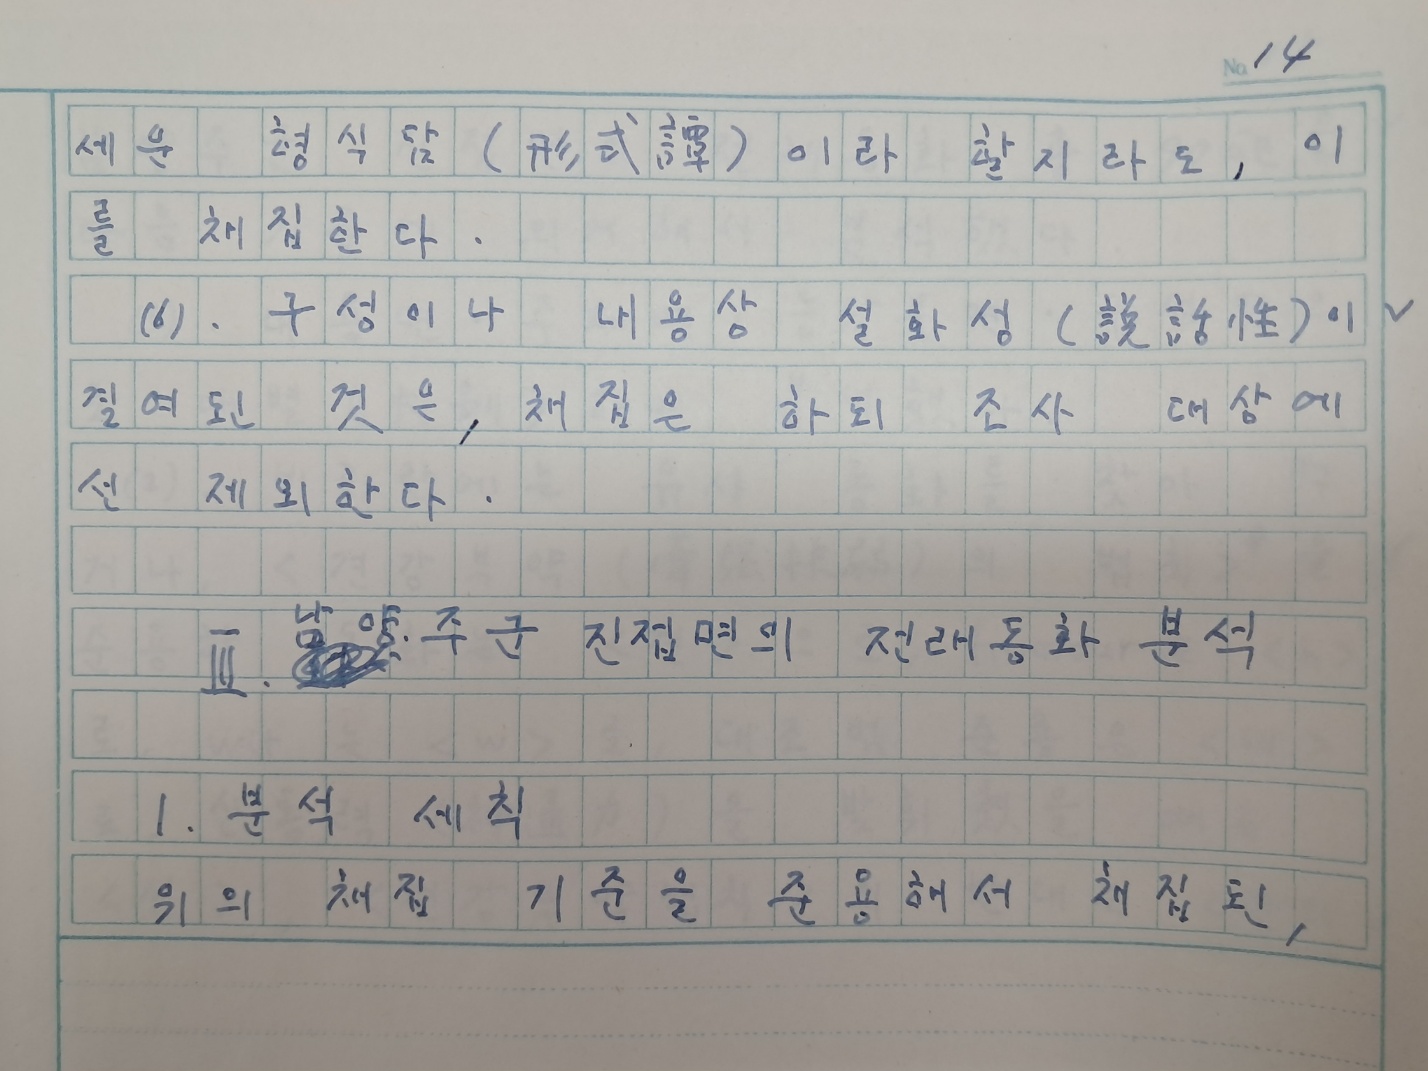 No. 14
세운 형식담(形式譚)이라 할지라도, 이
를 채집한다.
(6). 구성이나 내용상 설화성(說話性)이
결여된 것은, 채집은 하되 조사 대상에
선 제외한다.
Ⅲ. 남양주군 진접면의 전래동화 분석
1. 분석 세칙
위의 채집 기준을 준용해서 채집된,